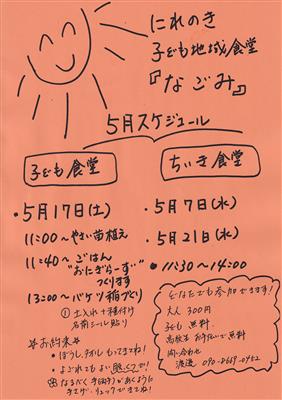 にれのき
子ども地域食堂
『なごみ』
5月スケジュール
子ども食堂
・5月17日(土)
11:00〜やさい苗植え
11:40〜ごはん
"おにぎらーず"
つくります
13:00〜バケツ稲づくり
①土入れ+種付け
名前シール貼り
☆お約束☆
・ぼうし、タオルもってきてね!
・よごれてもよい服で!
なるだけ手(両手)があくように
てさげ、リュックできてね!
ちいき食堂
・5月7日(水)
・5月21日(水)
・11:30〜14:00
どなたでも参加できます!
大人 300円
子ども 無料
高校生 お手伝いで無料
問い合わせ
渡邉 090-8669-0452